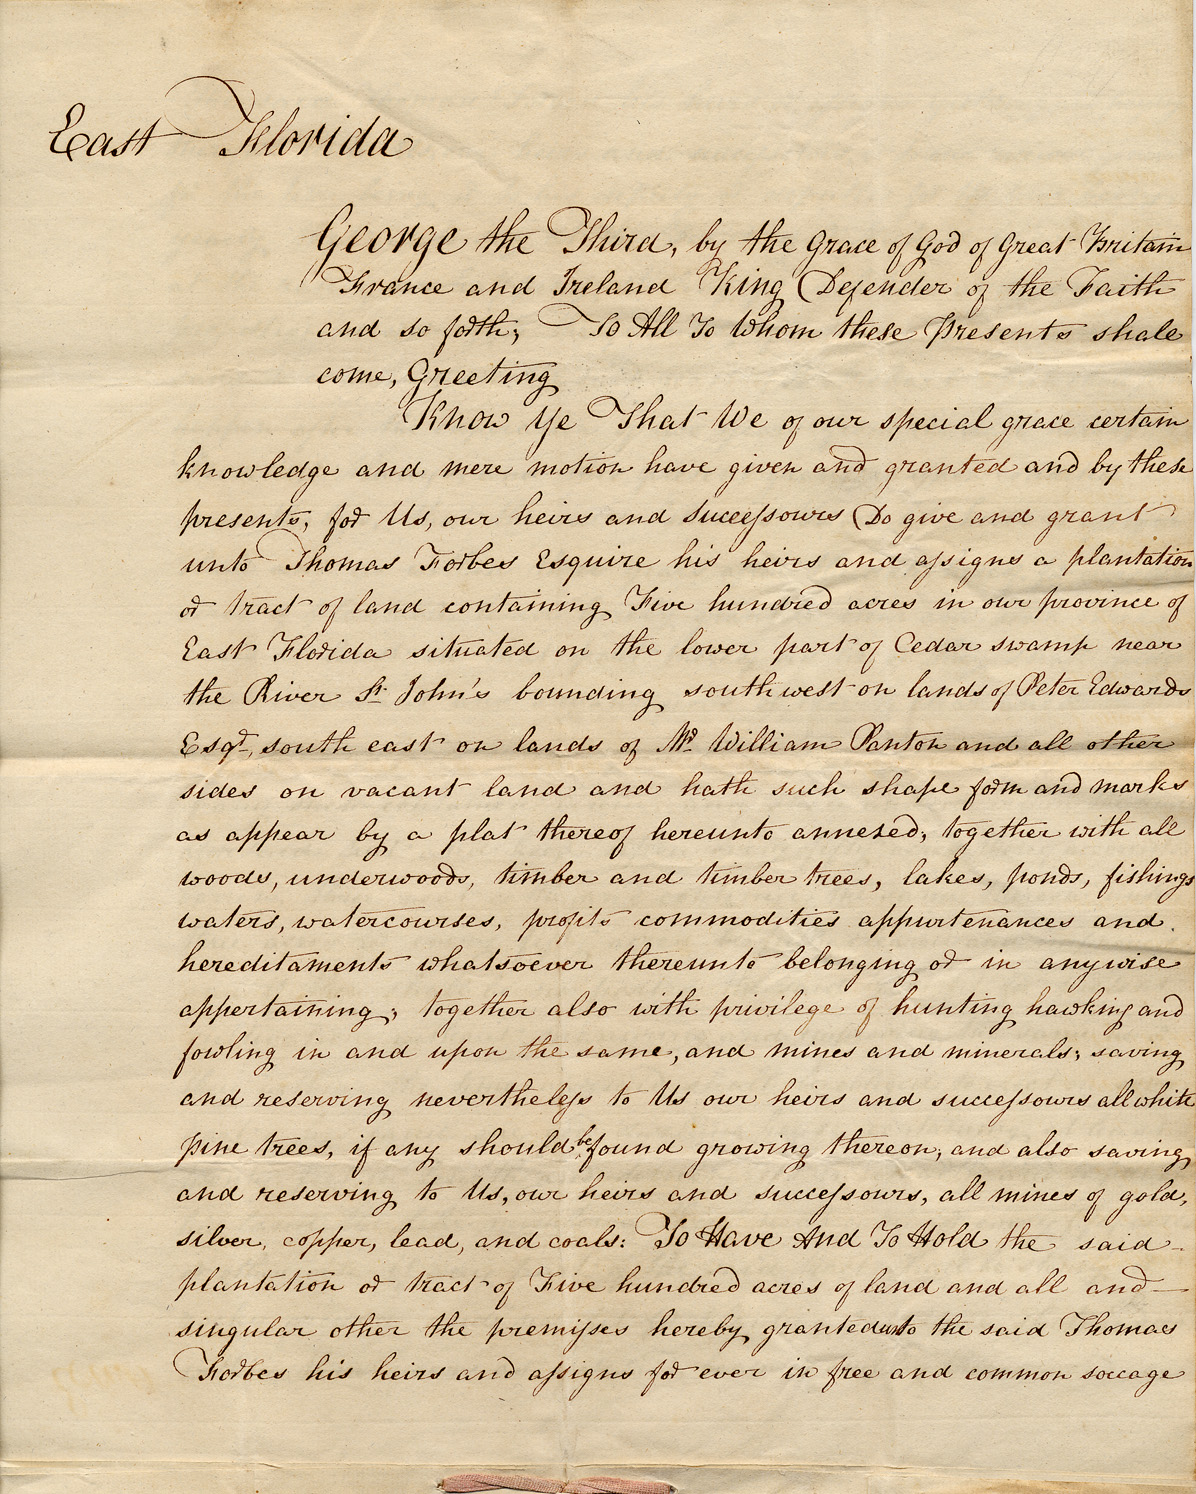 East Florida
George the Third, by the Grace of God of Great Britain
France and Ireland King Defender of the Faith
and so forth; To All To Whom these Presents shall
come, Greeting
Know Ye That We of our special grace certain
knowledge and mere motion have given and granted and by these
presents, for Us, our heirs and Succeſsours Do give and grant
unto Thomas Forbes Esquire his heirs and aſsigns a plantation
or tract of land containing Five hundred acres in our province of
East Florida situated on the lower part of Cedar swamp near
the River St. John's bounding southwest on lands of Peter Edwards
Esqr., south east on lands of Mr. William Panton and all other
sides on vacant land and hath such shape form and marks
as appear by a plat thereof hereunto annexed; together with all
woods, underwoods, timber and timber trees, lakes, ponds, fishings
waters, watercourses, profits commodities appurtenances and
hereditaments whatsoever thereunto belonging or in anywise
appertaining; together also with privilege of hunting hawking and
fowling in and upon the same, and mines and minerals; saving
and reserving nevertheleſs to Us our heirs and succeſsours all white
pine trees, if any should be found growing thereon; and also saving
and reserving to Us, our heirs and succeſsours, all mines of gold,
silver, copper, lead, and coals: To Have And To Hold the said
plantation or tract of Five hundred acres of land and all and
singular other the premiſses hereby granted unto the said Thomas
Forbes his heirs and aſsigns for ever in free and common soccage